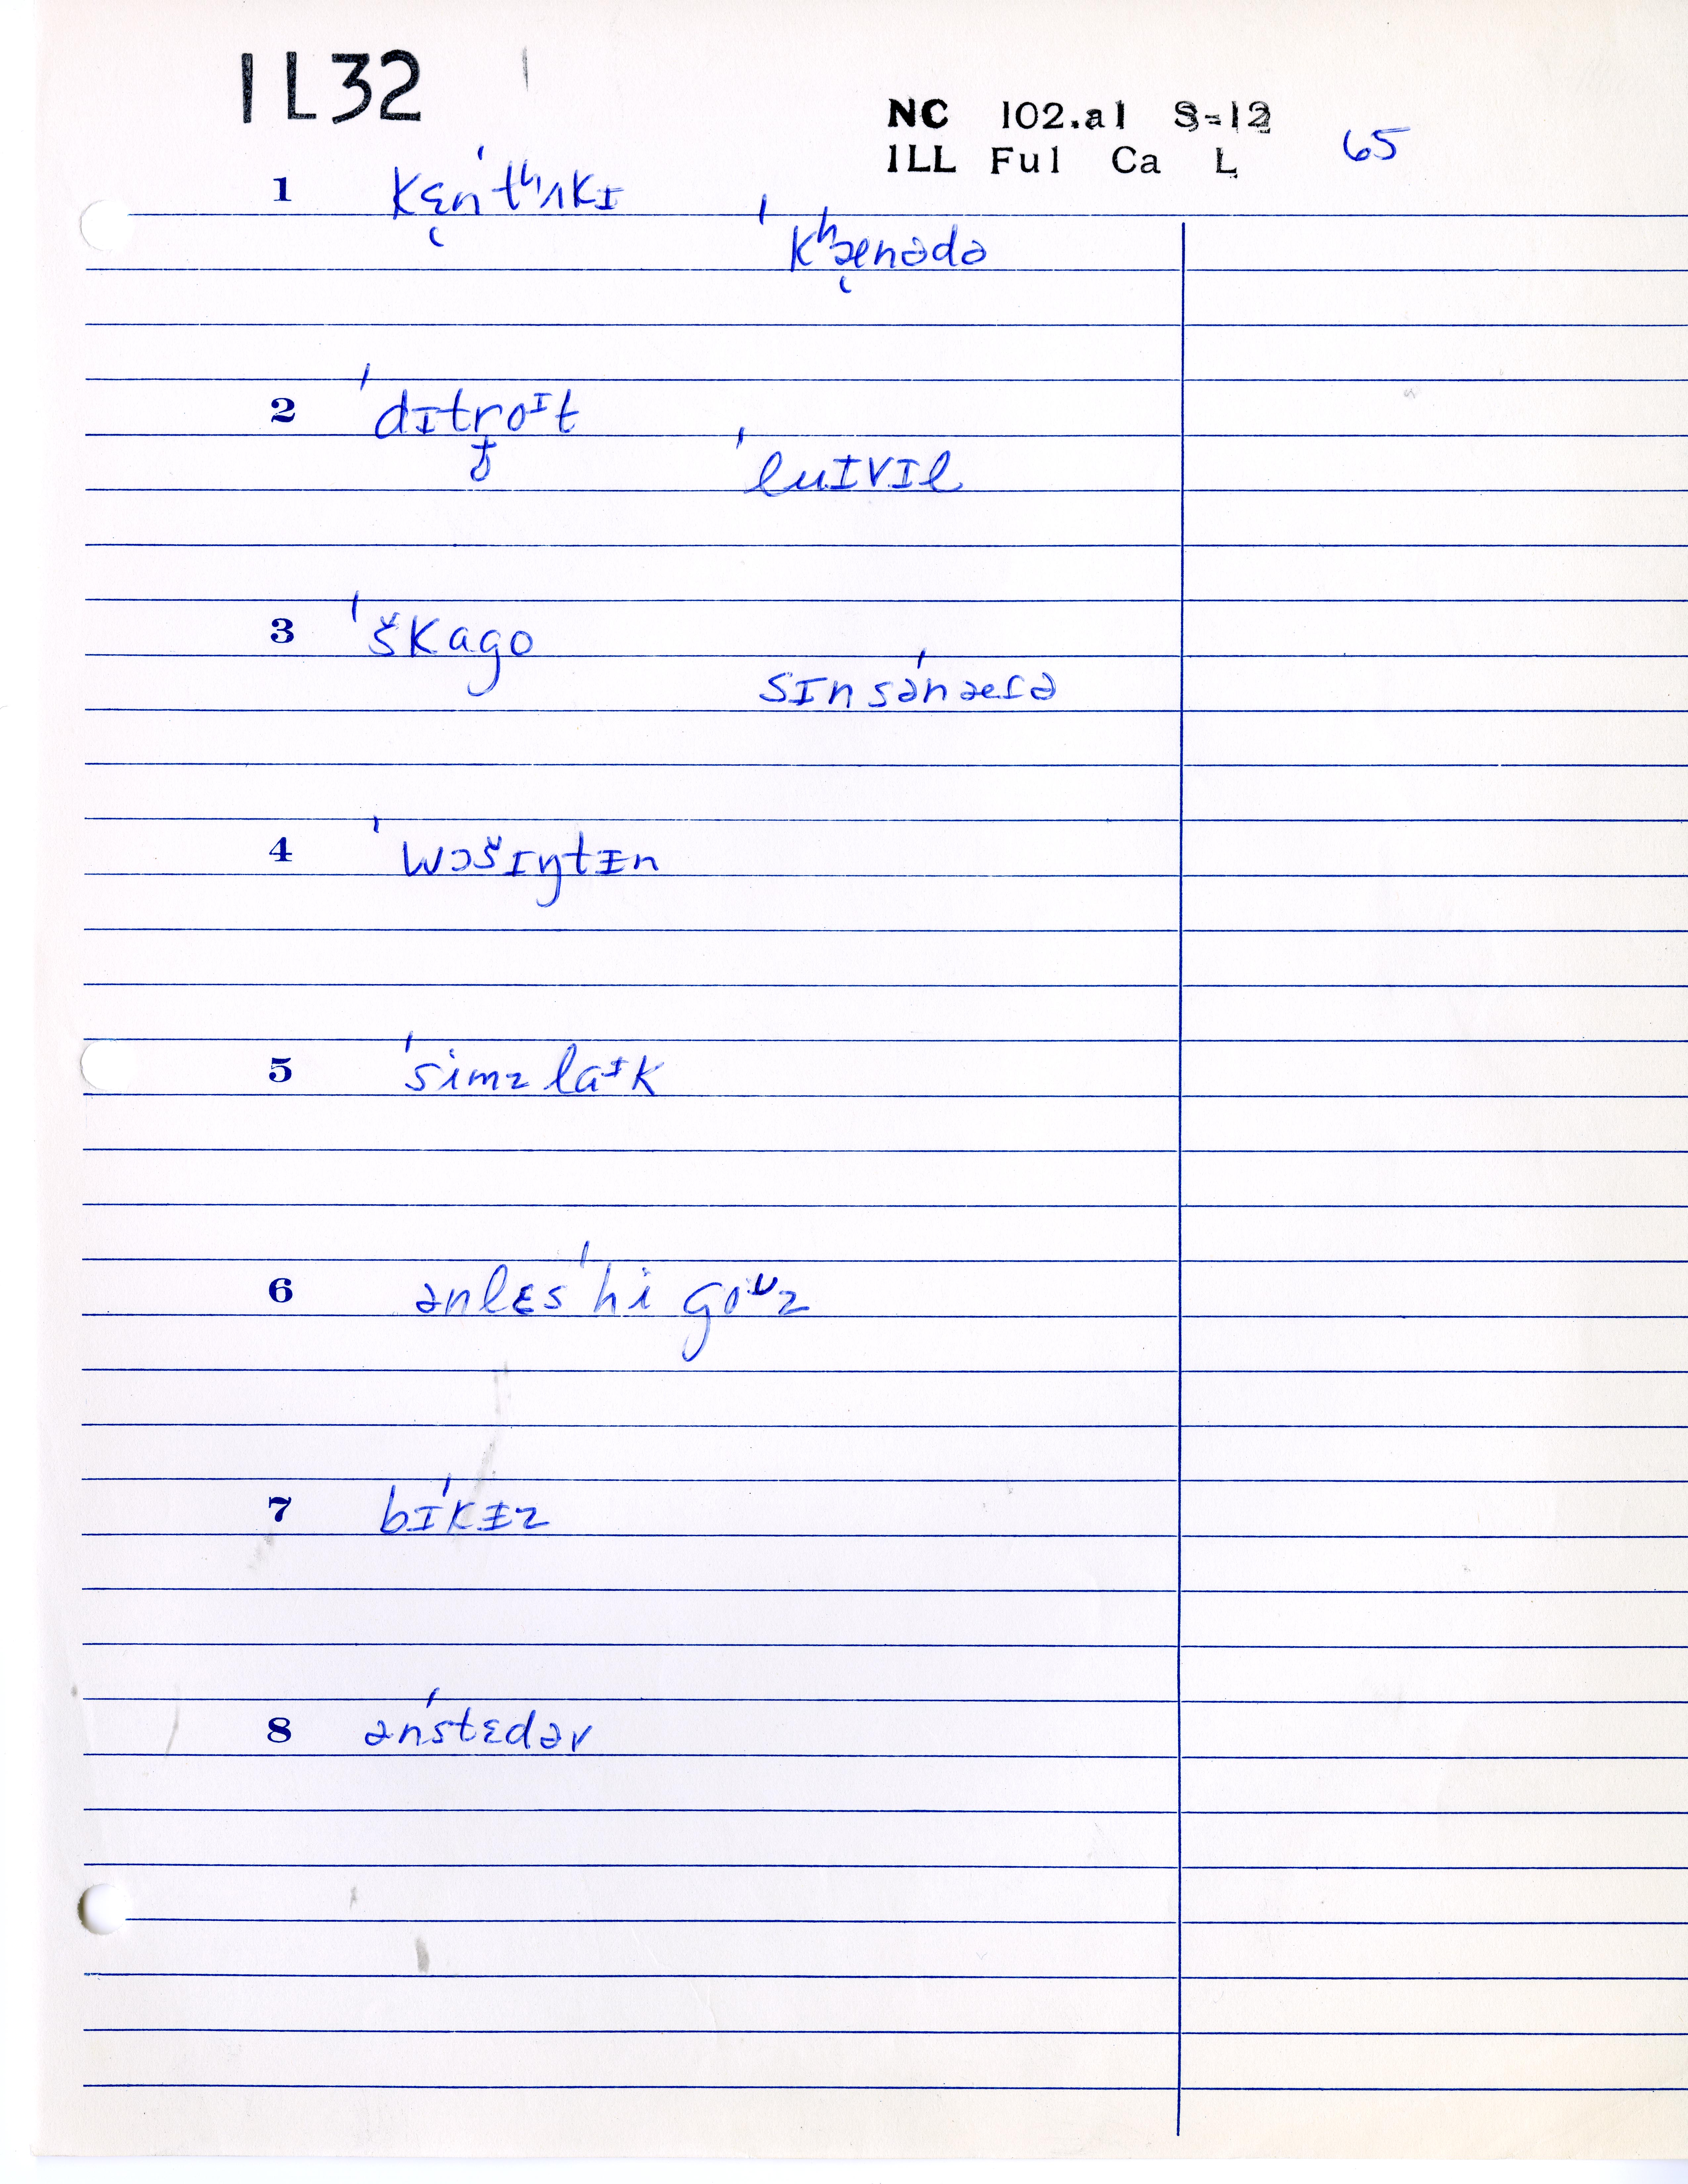 IL32
NC 102.a1 S-12
ILL Ful Ca L 65
1 kɛ̜n'tʰʌkɪ
'kʰæ̜nədə
2 'dɪtr̥oᶦt
'luɪvɪl
3 'škago
sɪnsə'næɾə
4 'wɔšɪŋtɨn
5 'simz laᶦk
6 ənlɛs 'hi goᶷz
7 bɪ'kɨz
8 ən'stɛdəv